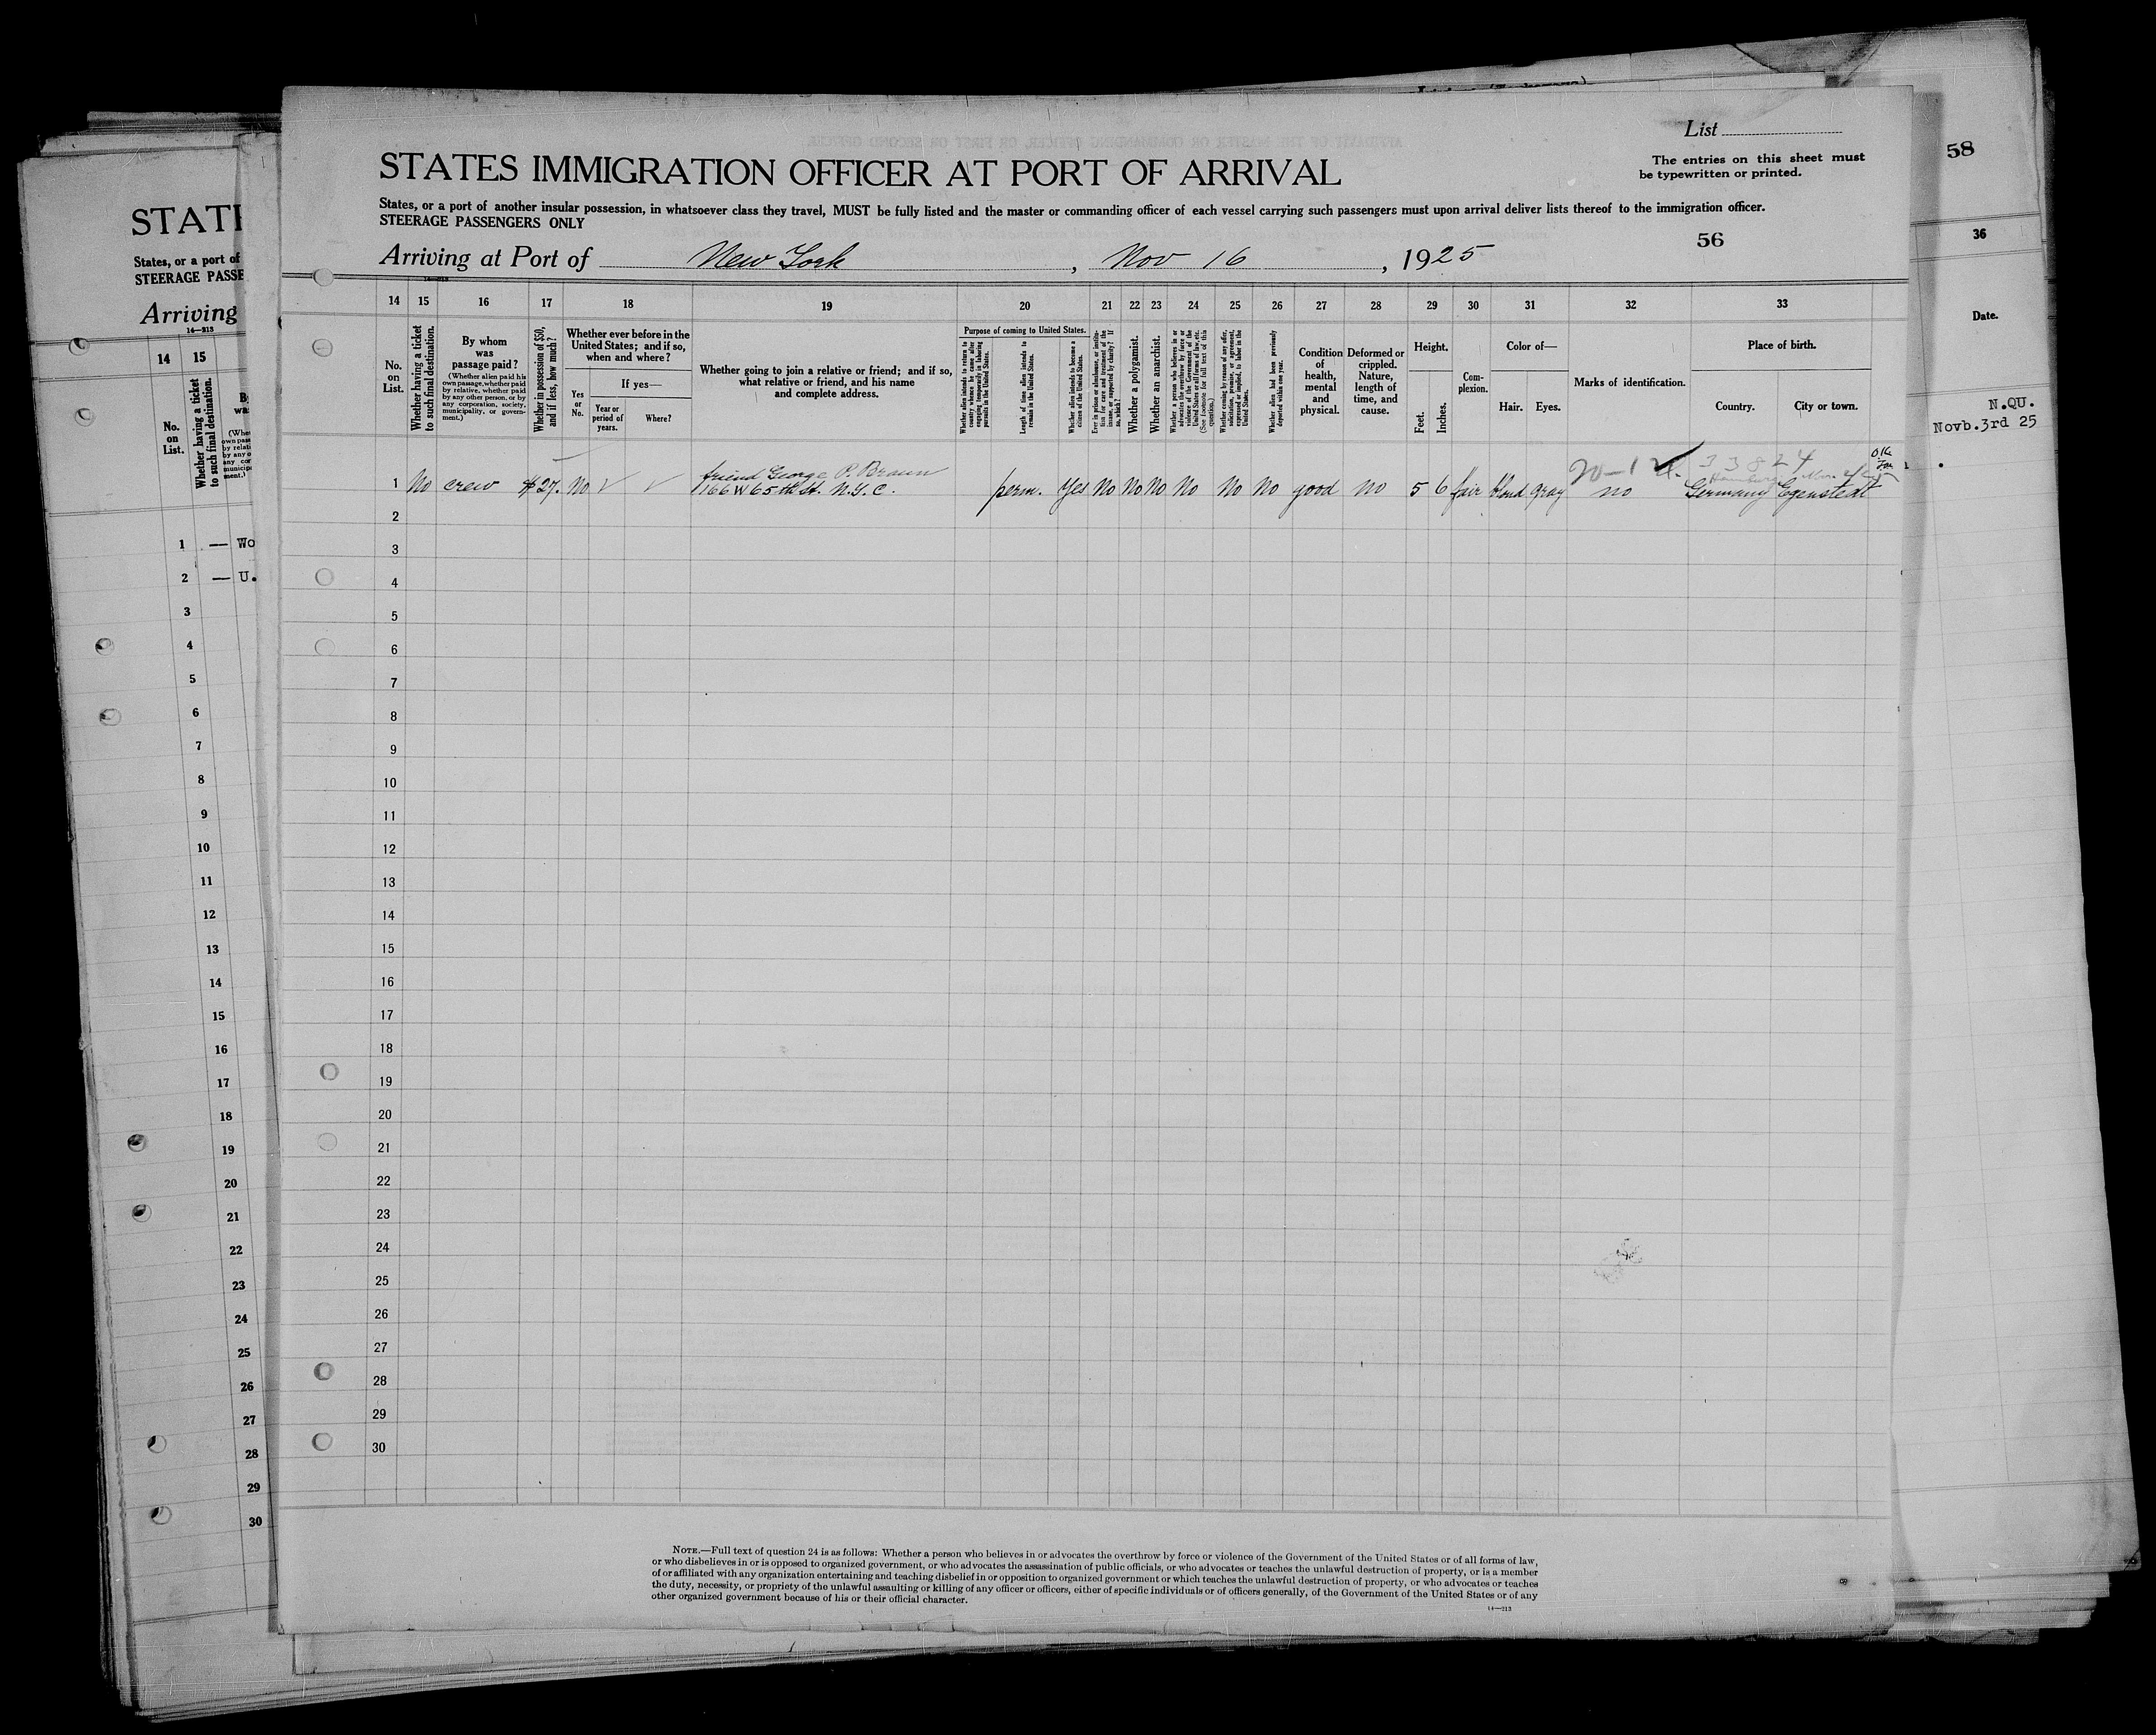 List
The entries on this sheet must
be typewritten or printed.
STATES IMMIGRATION OFFICER AT PORT OF ARRIVAL
States, or a port of another insular possession, in whatsoever class they travel, MUST be fully listed and the master or commanding officer of each vessel carrying such passengers must upon arrival deliver lists thereof to the immigration officer.
STEERAGE PASSENGERS ONLY
56
Arriving at Port of New York, Nov 16, 1925
14 15 16 17 18 19 20 21 22 23 24 25 26 27 28 29 30 31 32 33
No. on List.
Whether having a ticket to such final destination.
By whom was passage paid?
(Whether alien paid his own passage, whether paid by relative, whether paid by any other person, or by any corporation, society, municipality, or government.)
Whether in possession of $50, and if less, how much?
Whether ever before in the United States; and if so, when and where?
Yes or No.
If yes—
Year or period of years.
Where?
Whether going to join a relative or friend; and if so, what relative or friend, and his name and complete address.
Purpose of coming to United States.
Whether alien intends to return to country whence he came after engaging temporarily in laboring pursuits in the United States.
Length of time alien intends to remain in the United States.
Whether alien intends to become a citizen of the United States.
Ever in prison or almshouse, or institution for care and treatment of the insane, or supported by charity? If so, which?
Whether a polygamist.
Whether an anarchist.
Whether a person who believes in or advocates the overthrow by force or violence of the Government of the United States or all forms of law, etc. (See footnote for full text of this question.)
Whether coming by reason of any offer, solicitation, promise, or agreement, expressed or implied, to labor in the United States.
Whether alien had been previously deported within one year.
Condition of health, mental and physical.
Deformed or crippled. Nature, length of time, and cause.
Height.
Feet.
Inches.
Complexion.
Color of—
Hair.
Eyes.
Marks of identification.
Place of birth.
Country.
City or town.
20-1 33824 OK
friend George P. Braun
1 No crew $27. No 166 W 65th St. N.Y.C. perm. Yes No No No No No No good no 5 6 fair blond gray no Germany Egenstedt
2
3
4
5
6
7
8
9
10
11
12
13
14
15
16
17
18
19
20
21
22
23
24
25
26
27
28
29
30
NOTE.—Full text of question 24 is as follows: Whether a person who believes in or advocates the overthrow by force or violence of the Government of the United States or of all forms of law,
or who disbelieves in or is opposed to organized government, or who advocates the assassination of public officials, or who advocates or teaches the unlawful destruction of property, or is a member
of or affiliated with any organization entertaining and teaching disbelief in or opposition to organized government or which teaches the unlawful destruction of property, or who advocates or teaches
the duty, necessity, or propriety of the unlawful assaulting or killing of any officer or officers, either of specific individuals or of officers generally, of the Government of the United States or of any
other organized government because of his or their official character.
14—213
STATE
States, or a port of
STEERAGE PASSE
Arriving
14—213
14 15
No. on List.
Whether having a ticket to such final destination.
1 — Wo
2 — U.
3
4
5
6
7
8
9
10
11
12
13
14
15
16
17
18
19
20
21
22
23
24
25
26
27
28
29
30
58
36
Date.
N.QU.
Novb.3rd 25